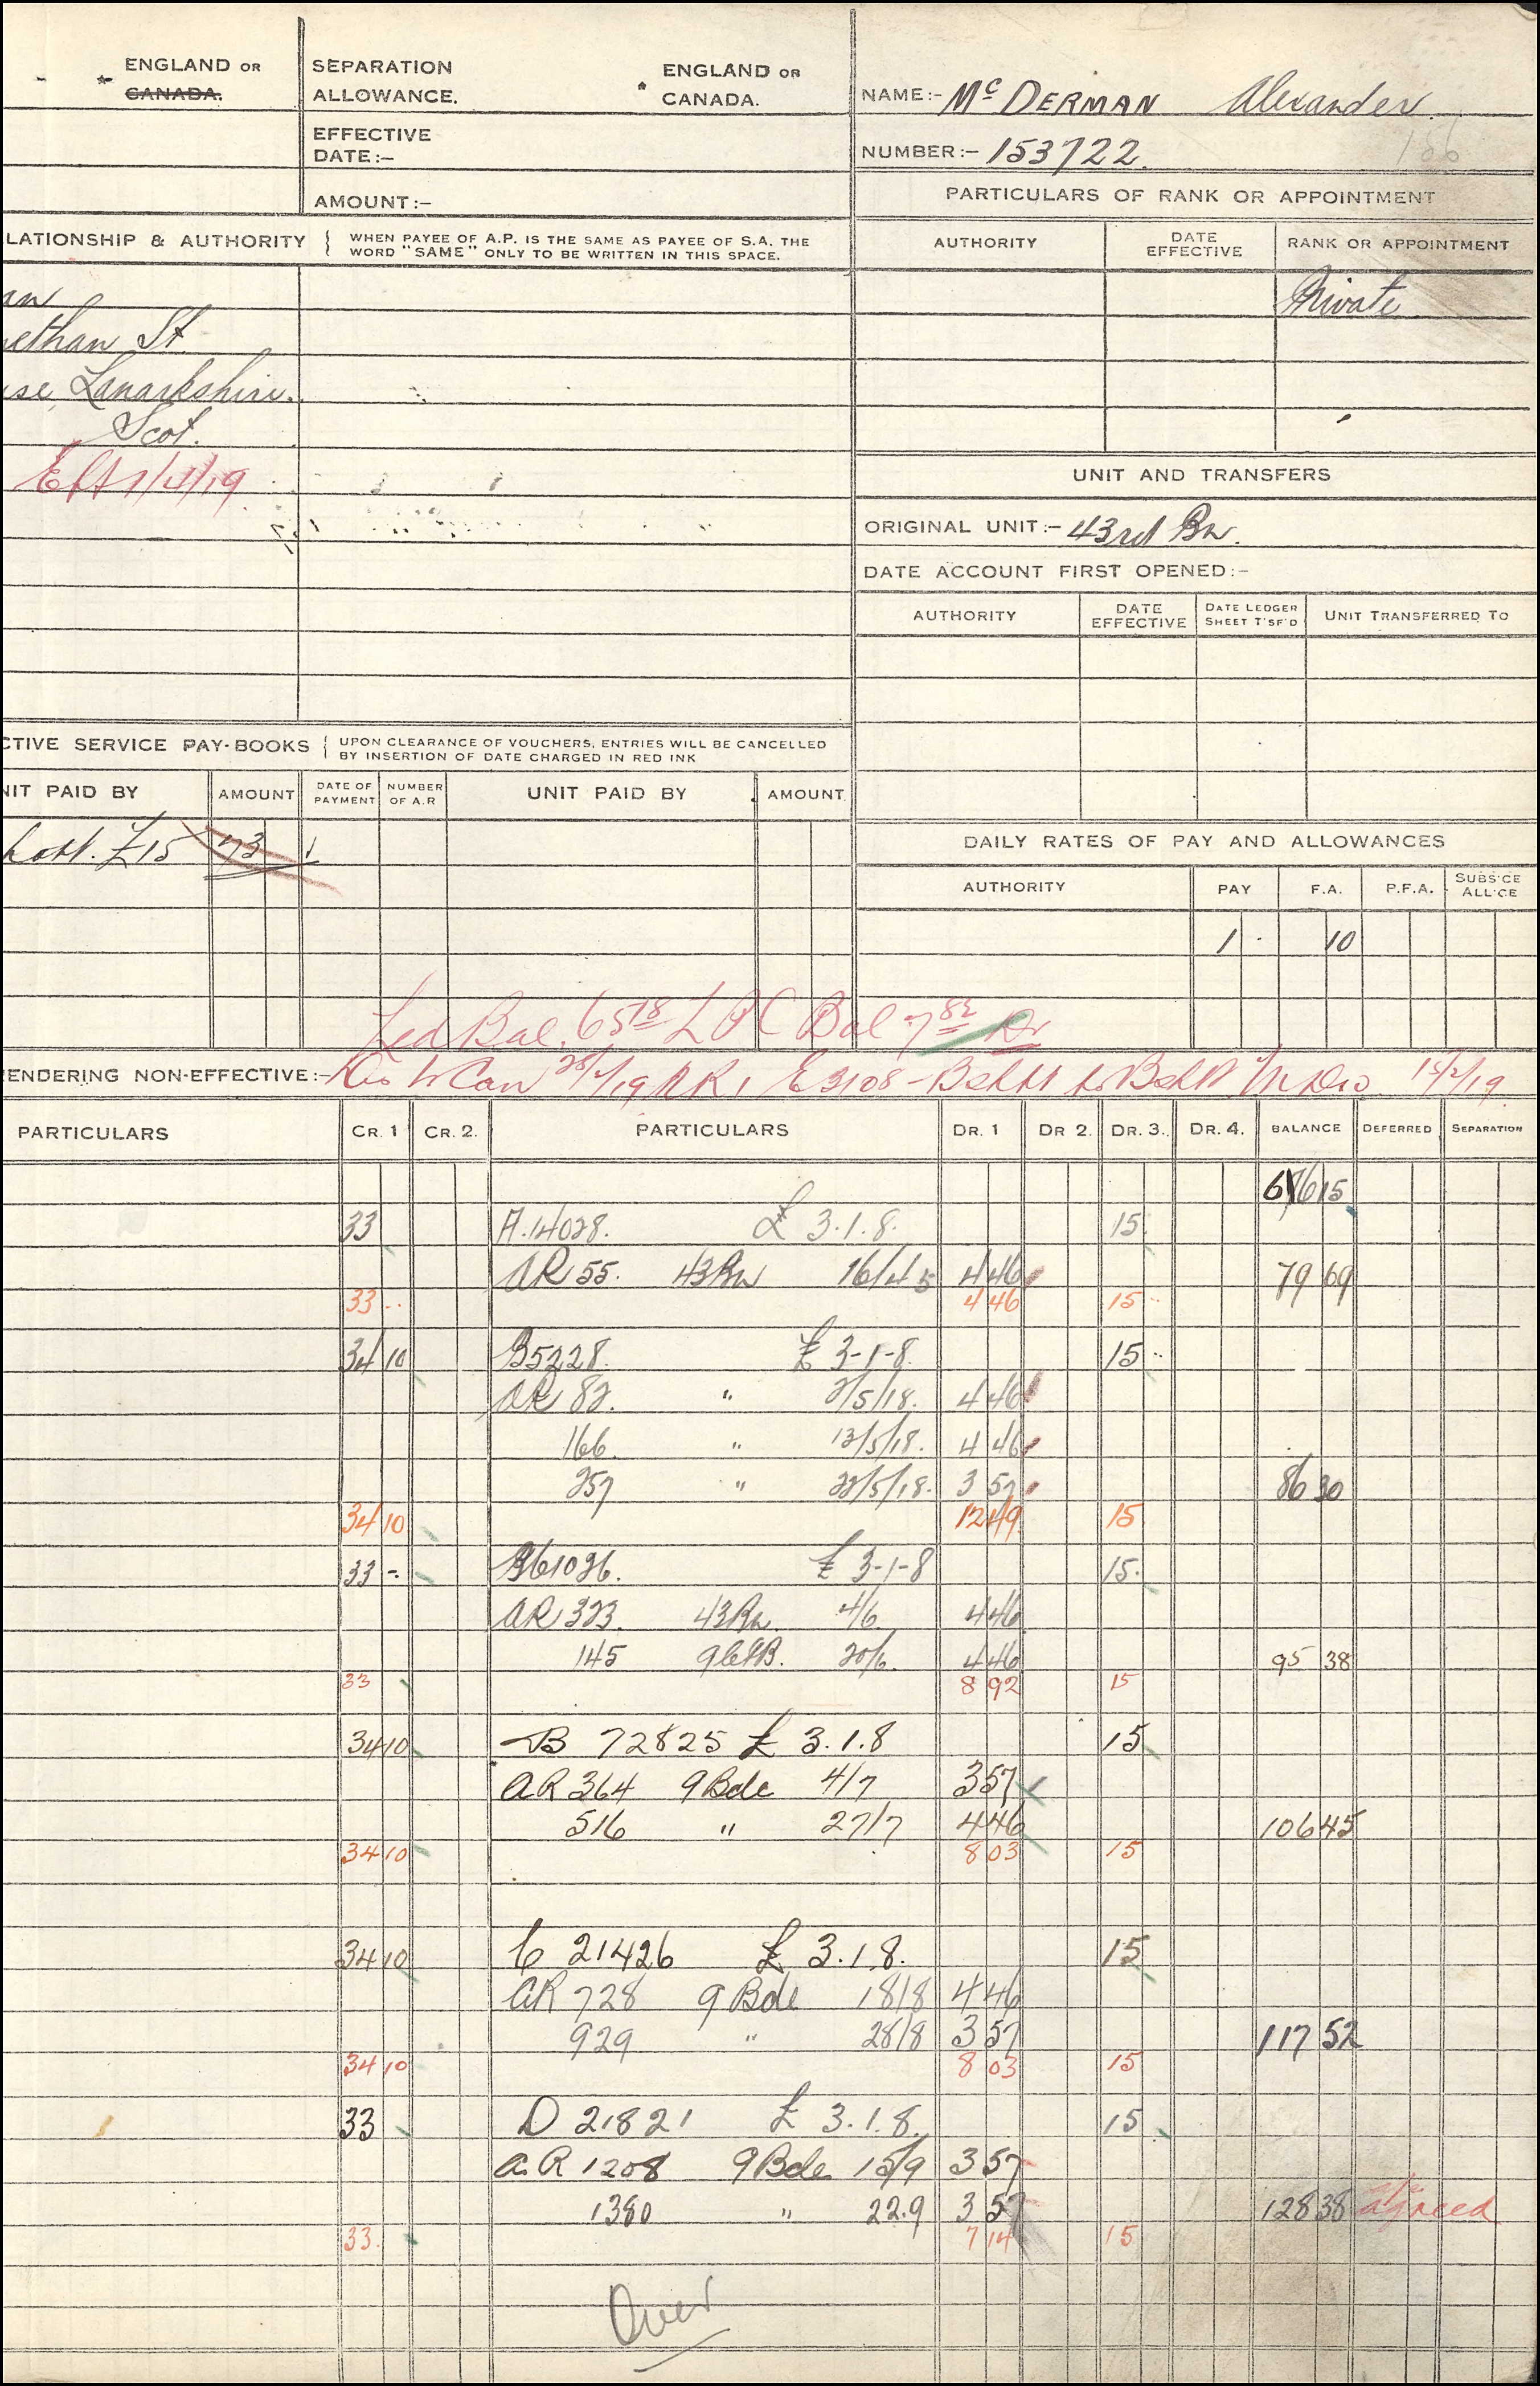 * ENGLAND OR
CANADA.
SEPARATION
ALLOWANCE.
* ENGLAND OR
CANADA.
EFFECTIVE
DATE:-
AMOUNT:-
NAME:- McDERMAN Alexander.
NUMBER:- 153722. 186
PARTICULARS OF RANK OR APPOINTMENT
AUTHORITY DATE EFFECTIVE RANK OR APPOINTMENT
Private
LATIONSHIP & AUTHORITY { WHEN PAYEE OF A.P. IS THE SAME AS PAYEE OF S.A. THE
WORD "SAME" ONLY TO BE WRITTEN IN THIS SPACE.
an
ethan St.
se, Lanarkshire.
Scot.
UNIT AND TRANSFERS
ORIGINAL UNIT:- 43rd Bn.
DATE ACCOUNT FIRST OPENED:-
AUTHORITY DATE EFFECTIVE DATE LEDGER SHEET T'SF'D UNIT TRANSFERRED TO
CTIVE SERVICE PAY-BOOKS { UPON CLEARANCE OF VOUCHERS, ENTRIES WILL BE CANCELLED
BY INSERTION OF DATE CHARGED IN RED INK
NIT PAID BY AMOUNT DATE OF PAYMENT NUMBER OF A.R UNIT PAID BY AMOUNT
£15 73
DAILY RATES OF PAY AND ALLOWANCES
AUTHORITY PAY F.A. P.F.A. SUBS'CE ALL'CE
1 . 10
Led Bal. 65 78 L P C Bal 7 82 Dr
ENDERING NON-EFFECTIVE:- Dis to Can /19 15/2/19
PARTICULARS CR. 1 CR. 2. PARTICULARS DR. 1 DR 2. DR. 3. DR. 4. BALANCE DEFERRED SEPARATION
33 A.14028. £ 3.1.8. 15.
AR 55. 43Bn 16/4 4 46 79 69
33 .. 4 46 15 ..
34 10 B5228. £ 3-1-8. 15 ..
AR 82. " 2/5/18. 4 46
166. " 12/5/18. 4 46
257 " 22/5/18. 3 57 86 30
34 10 12 49 15
33 - B61026. £ 3-1-8 15.
AR 323. 43Bn. 4/6 4 46
145 20/6. 4 46 95 38
33 8 92 15
34 10 B 72825 £ 3.1.8 15
AR 364 9 Bde 4/7 3 57
516 " 27/7 4 46 106 45
34 10 8 03 15
34 10 C 21426 £ 3.1.8. 15
AR 728 9 Bde 18/8 4 46
929 " 28/8 3 57 117 52
34 10 8 03 15
33 D 21821 £ 3.1.8. 15
A.R 1208 9 Bde 15/9 3 57
1380 " 22.9 3 57 128 38 agreed
33. 7 14 15
Over